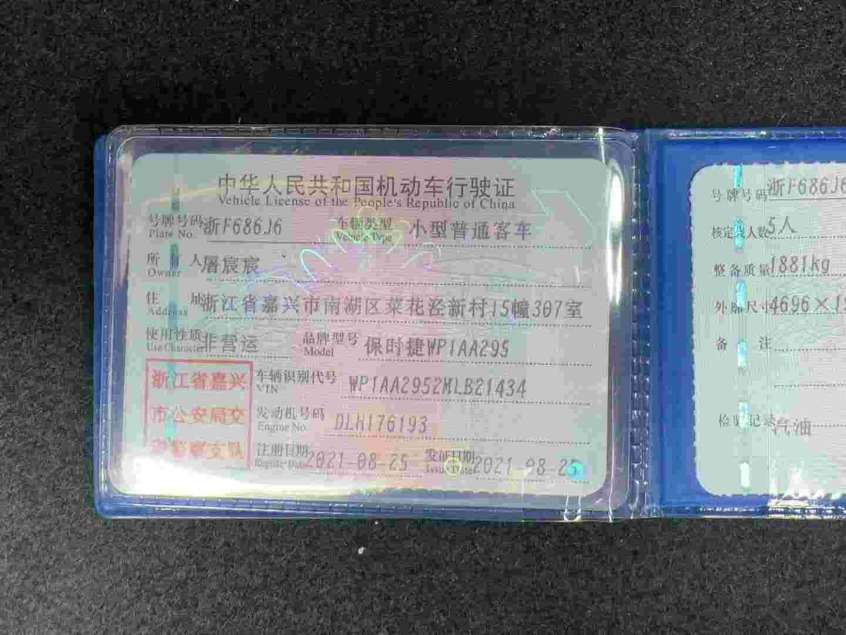 中华人民共和国机动车行驶证
Vehicle License of the People's Republic of China
号牌号码 浙F686J6 车辆类型 小型普通客车
Plate No. Vehicle Type
所有人 屠宸宸
Owner
住址 浙江省嘉兴市南湖区菜花泾新村15幢307室
Address
使用性质 非营运 品牌型号 保时捷WP1AA295
Use Character Model
浙江省嘉兴
市公安局交
通警察支队
车辆识别代号 WP1AA2952MLB21434
VIN
发动机号码 DLH176193
Engine No.
注册日期 2021-08-25 发证日期 2021-08-25
Register Date Issue Date
号牌号码 浙F686J6
核定载人数 5人
整备质量 1881kg
外廓尺寸 4696×
备注
检验记录 汽油